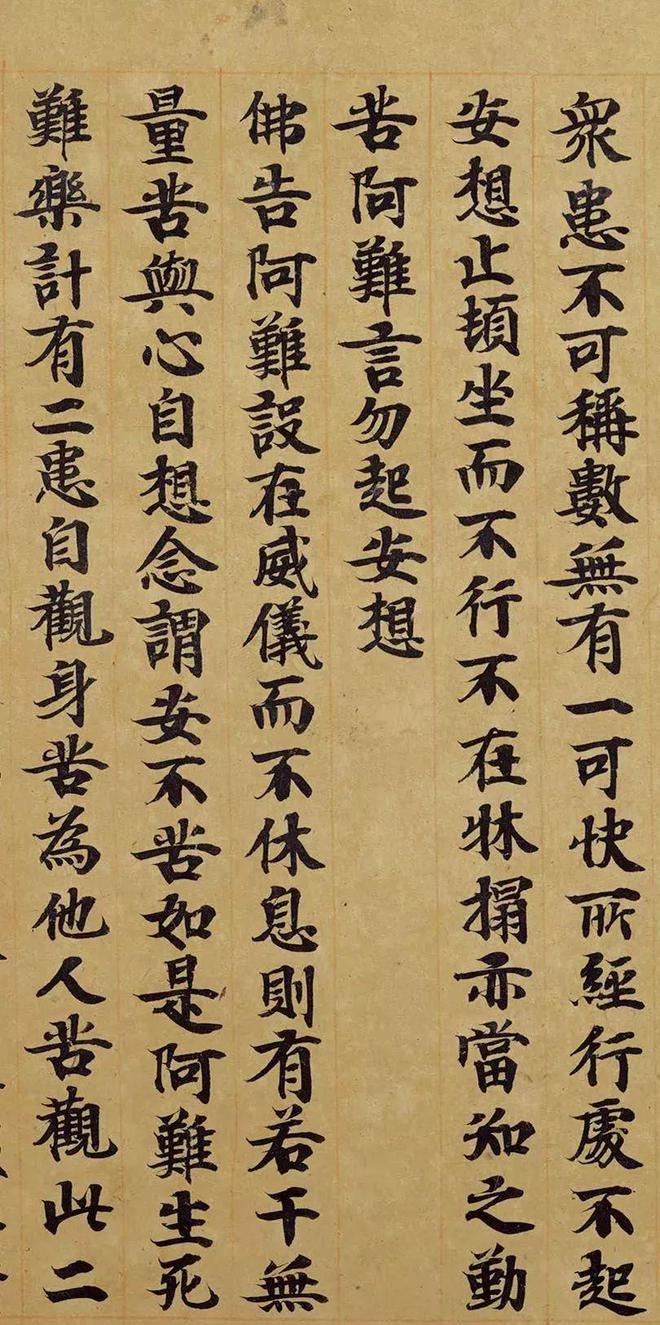 衆患不可稱數無有一可快所經行處不起
安想止頓坐而不行不在牀榻亦當知之勤
苦阿難言勿起安想
佛告阿難設在威儀而不休息則有若干無
量苦與心自想念謂安不苦如是阿難生死
難樂計有二患自觀身苦為他人苦觀此二